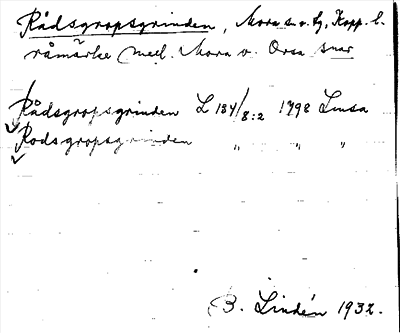 Rådsgropsgrinden, Mora sn o. tg, Kopp. l.
råmärke mell. Mora o. Orsa snar
Rådsgropsgrinden L 134/8:2 1798 Linsa
Rodsgropsgrinden " " "
B. Lindén 1932.